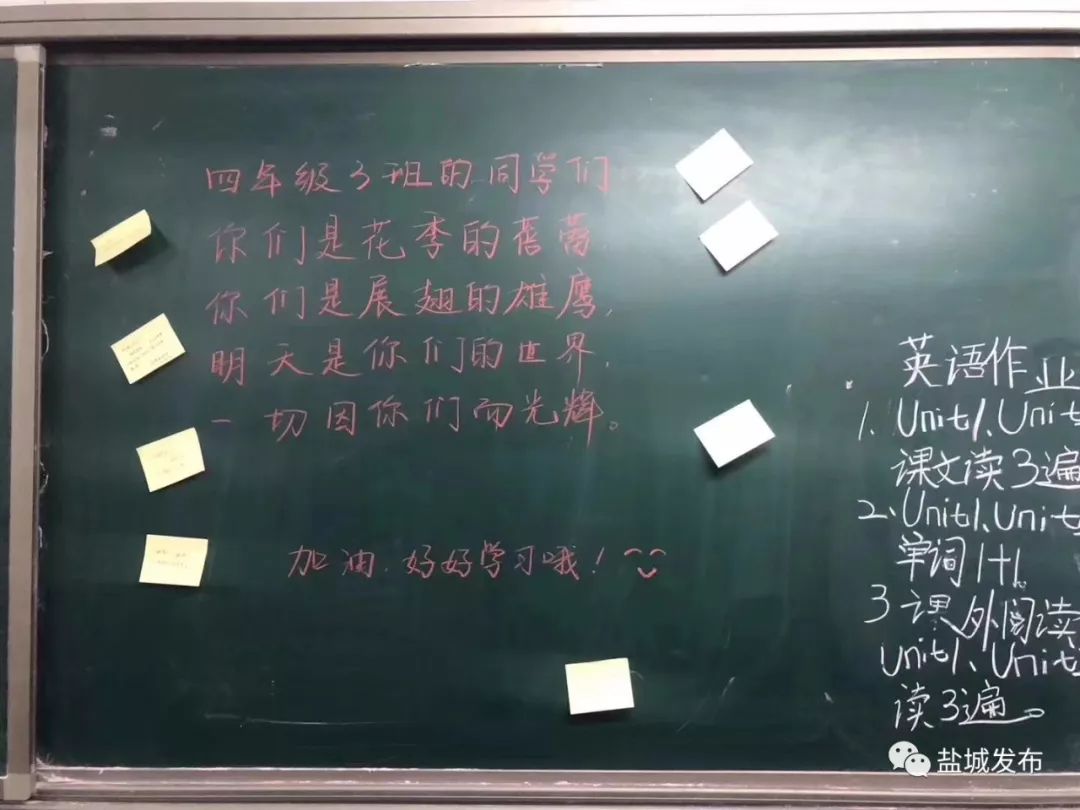 四年级3班的同学们
你们是花季的蓓蕾
你们是展翅的雄鹰,
明天是你们的世界,
一切因你们而光辉。
加油,好好学习哦!
英语作业
1、Unit1、Unit
课文读3遍
2、Unit1、Unit
单词1+1。
3课外阅读
Unit1、Unit
读3遍。
盐城发布